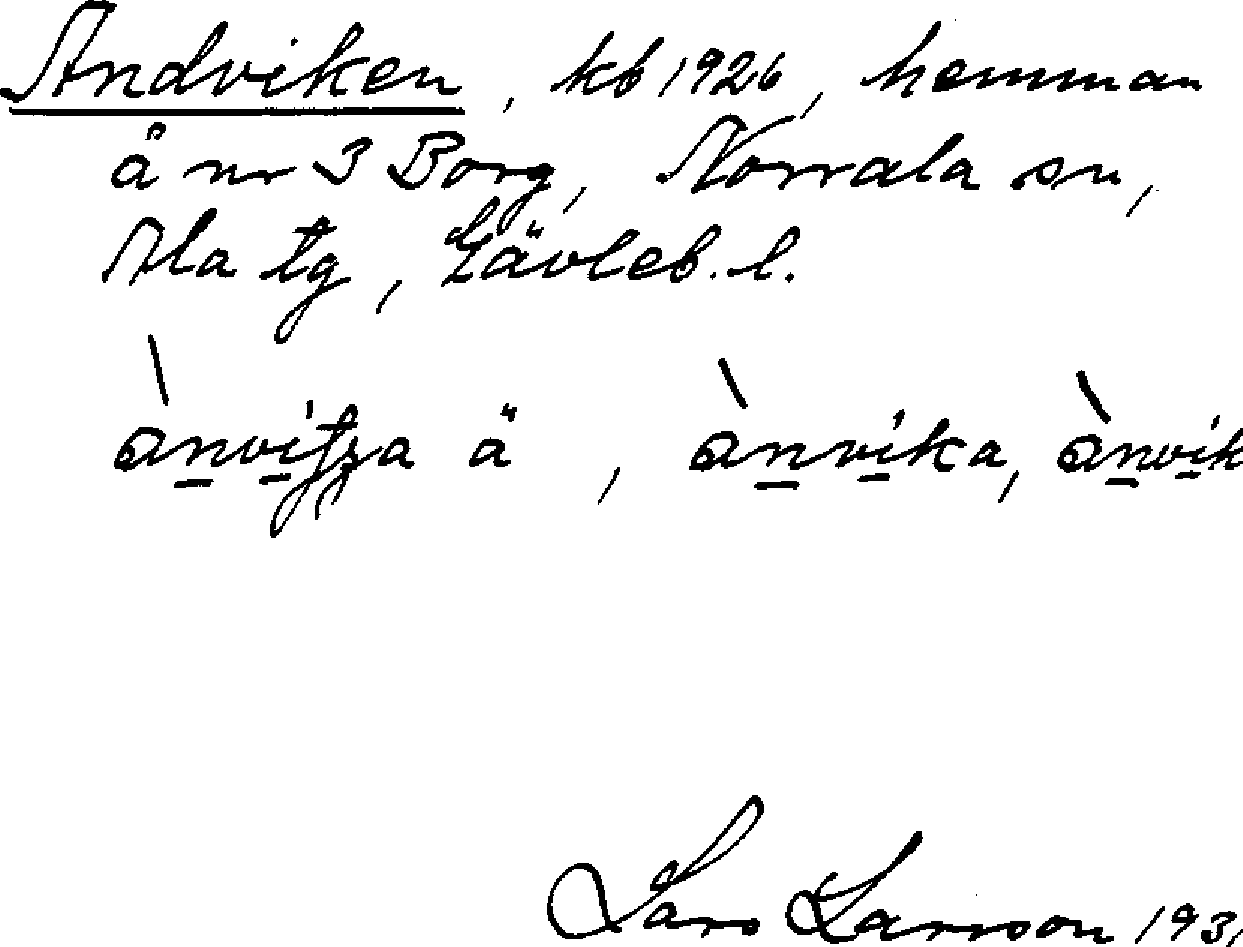 Andviken, kb 1926, hemman
å nr 3 Borg, Norrala sn,
Ala tg, Gävleb. l.
ànvitza ä, ànvika, ànvik
Lars Larsson 193